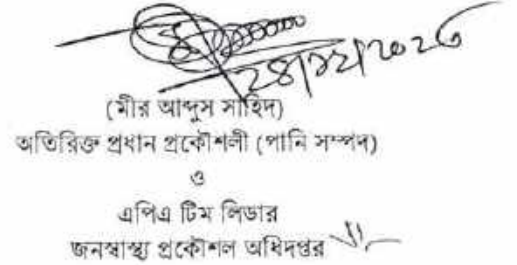 ২৪/১২/২০২৩
(মীর আব্দুস সাহিদ)
অতিরিক্ত প্রধান প্রকৌশলী (পানি সম্পদ)
ও
এপিএ টিম লিডার
জনস্বাস্থ্য প্রকৌশল অধিদপ্তর